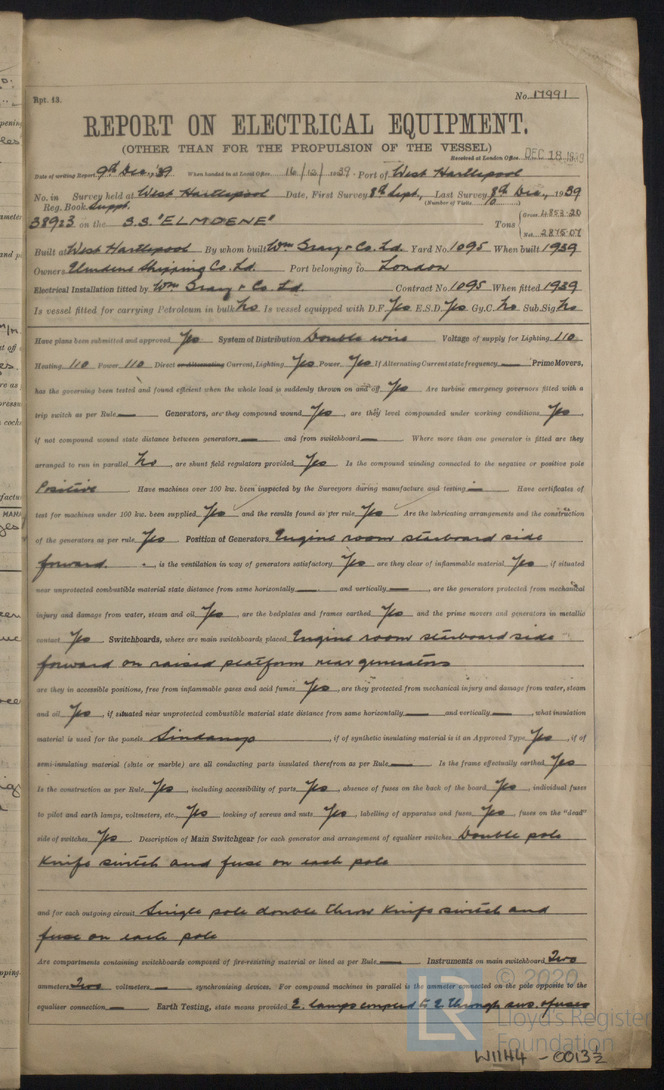 Rpt. 13.
No. 17991
REPORT ON ELECTRICAL EQUIPMENT.
(OTHER THAN FOR THE PROPULSION OF THE VESSEL)
Received at London Office DEC 18 1939
Date of writing Report 9th Dec. 1939 When handed in at Local Office 16/12/1939 Port of West Hartlepool
No. in Survey held at West Hartlepool Date, First Survey 8th Sept., Last Survey 8th Dec., 1939
Reg. Book. Suppt. (Number of Visits 10)
38923 on the S.S. "ELMDENE" Tons { Gross 4853.20
Net 2875.07
Built at West Hartlepool By whom built Wm Gray & Co. Ld. Yard No. 1095 When built 1939
Owners Elmdene Shipping Co. Ld. Port belonging to London
Electrical Installation fitted by Wm Gray & Co. Ld. Contract No. 1095 When fitted 1939
Is vessel fitted for carrying Petroleum in bulk No Is vessel equipped with D.F. Yes E.S.D. Yes Gy.C. No Sub.Sig. No
Have plans been submitted and approved Yes System of Distribution Double wire Voltage of supply for Lighting 110
Heating 110 Power 110 Direct or Alternating Current, Lighting Yes Power Yes If Alternating Current state frequency — Prime Movers,
has the governing been tested and found efficient when the whole load is suddenly thrown on and off Yes Are turbine emergency governors fitted with a
trip switch as per Rule — Generators, are they compound wound Yes, are they level compounded under working conditions Yes,
if not compound wound state distance between generators — and from switchboard — Where more than one generator is fitted are they
arranged to run in parallel No, are shunt field regulators provided Yes Is the compound winding connected to the negative or positive pole
Positive Have machines over 100 kw. been inspected by the Surveyors during manufacture and testing — Have certificates of
test for machines under 100 kw. been supplied Yes and the results found as per rule Yes Are the lubricating arrangements and the construction
of the generators as per rule Yes Position of Generators Engine room starboard side
forward. , is the ventilation in way of generators satisfactory Yes are they clear of inflammable material Yes, if situated
near unprotected combustible material state distance from same horizontally — and vertically —, are the generators protected from mechanical
injury and damage from water, steam and oil Yes, are the bedplates and frames earthed Yes and the prime movers and generators in metallic
contact Yes Switchboards, where are main switchboards placed Engine room starboard side
forward on raised platform near generators
are they in accessible positions, free from inflammable gases and acid fumes Yes, are they protected from mechanical injury and damage from water, steam
and oil Yes, if situated near unprotected combustible material state distance from same horizontally — and vertically —, what insulation
material is used for the panels Sindanyo, if of synthetic insulating material is it an Approved Type Yes, if of
semi-insulating material (slate or marble) are all conducting parts insulated therefrom as per Rule — Is the frame effectually earthed Yes
Is the construction as per Rule Yes, including accessibility of parts Yes, absence of fuses on the back of the board Yes, individual fuses
to pilot and earth lamps, voltmeters, etc. Yes locking of screws and nuts Yes, labelling of apparatus and fuses Yes, fuses on the "dead"
side of switches Yes. Description of Main Switchgear for each generator and arrangement of equaliser switches Double pole
knife switch and fuse on each pole
and for each outgoing circuit Single pole double throw knife switch and
fuse on each pole
Are compartments containing switchboards composed of fire-resisting material or lined as per Rule — Instruments on main switchboard Two
ammeters Two voltmeters — synchronising devices. For compound machines in parallel is the ammeter connected on the pole opposite to the
equaliser connection — Earth Testing, state means provided 2 lamps coupled to E through sws. & fuses
© 2020
Lloyd's Register
Foundation
W1144 - 0013½